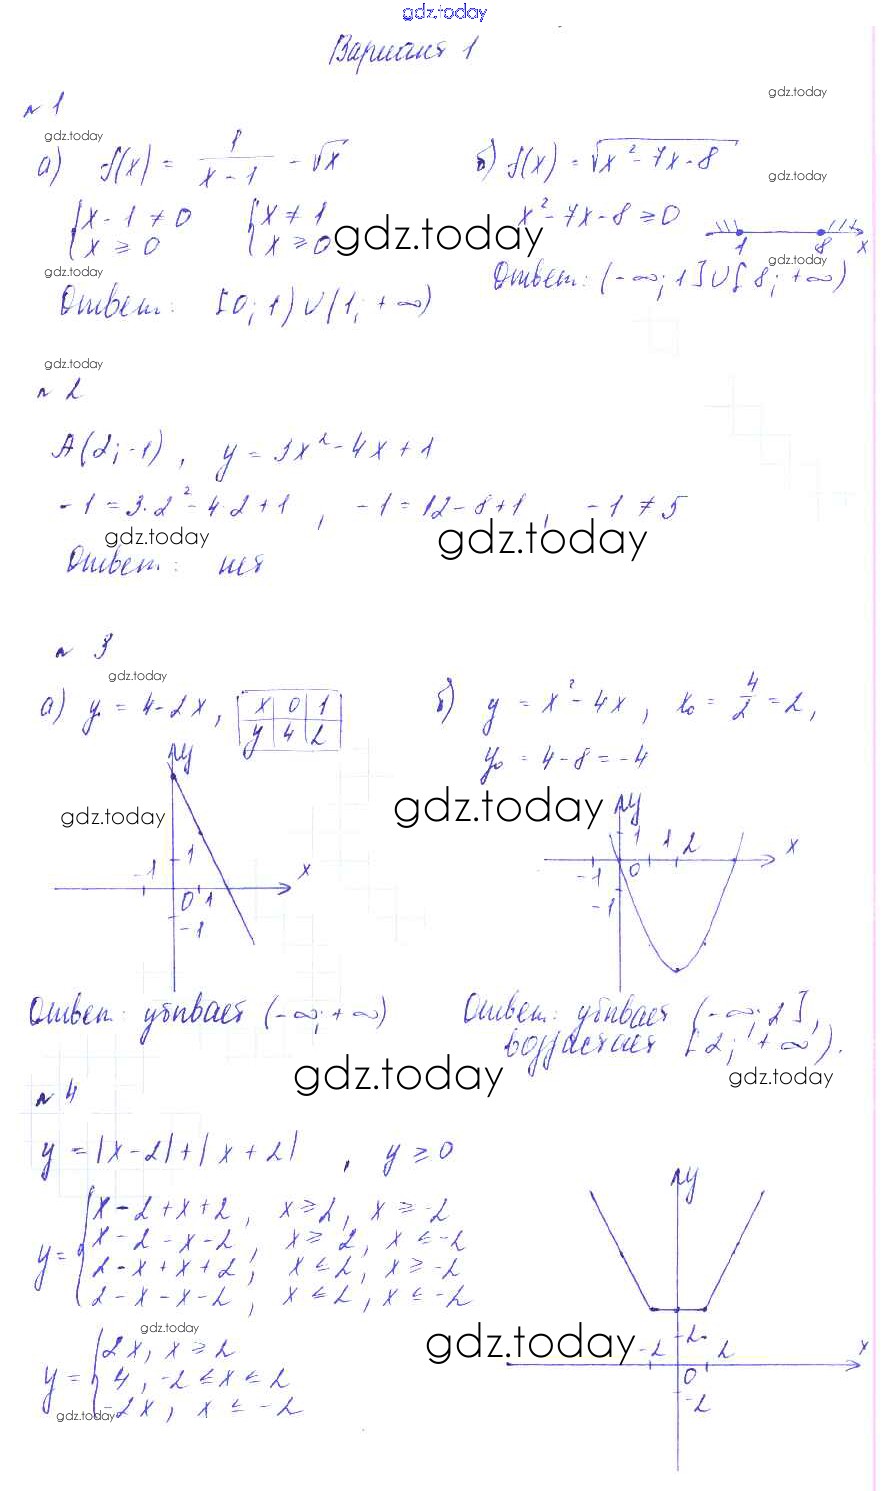 gdz.today
Вариант 1
№ 1
gdz.today
gdz.today
а) f(x) = 1/(x - 1) - √x
б) f(x) = √(x² - 7x - 8)
gdz.today
{x - 1 ≠ 0 {x ≠ 1
{x ≥ 0 {x ≥ 0
gdz.today
x² - 7x - 8 ≥ 0
1 8 x
gdz.today
gdz.today
Ответ: [0; 1) ∪ (1; +∞)
Ответ: (-∞; 1] ∪ [8; +∞)
gdz.today
№ 2
A(2; -1), y = 3x² - 4x + 1
-1 = 3·2² - 4·2 + 1, -1 = 12 - 8 + 1, -1 ≠ 5
gdz.today
gdz.today
Ответ: нет
№ 3
gdz.today
а) y = 4 - 2x,
x 0 1
y 4 2
б) y = x² - 4x, x₀ = 4/2 = 2,
y₀ = 4 - 8 = -4
gdz.today
gdz.today
y
1
-1 0 1 x
-1
y
1 1 2 x
-1 0
-1
Ответ: убывает (-∞; +∞)
Ответ: убывает (-∞; 2],
возрастает [2; +∞).
gdz.today
gdz.today
№ 4
y = |x - 2| + |x + 2|, y ≥ 0
y = {x - 2 + x + 2, x ≥ 2, x ≥ -2
x - 2 - x - 2, x ≥ 2, x ≤ -2
2 - x + x + 2, x ≤ 2, x ≥ -2
2 - x - x - 2, x ≤ 2, x ≤ -2
gdz.today
gdz.today
y = {2x, x ≥ 2
4, -2 ≤ x ≤ 2
-2x, x ≤ -2
gdz.today
y
2
-2 0 2 x
-2